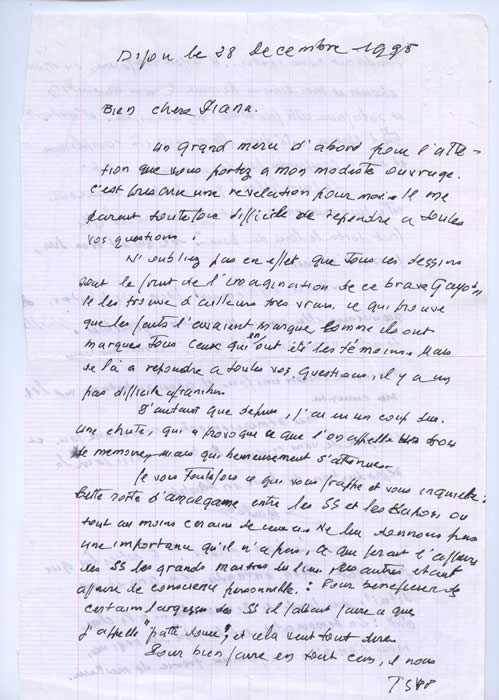 Dijon le 28 decembre 1995
Bien chere Diana.
Un grand merci d'abord pour l'atte-
tion que vous portez a mon modeste ouvrage.
c'est une revelation pour moi. Il me
parait toutefois difficile de repondre a toutes
vos questions.
N'oubliez pas en effet que tous ces dessins
sont le fruit de l'imagination de ce brave
Je les trouve d'ailleurs tres vrais. ce qui prouve
que les faits l'avaient marque, comme ils ont
marques tous ceux qui en ont été les témoins. Mais
de là a repondre a toutes vos questions, il y a un
pas difficile a franchir.
D'autant que depuis, j'ai eu un coup dur.
une chute, qui a provoque ce que l'on appelle des trous
de memoire, mais qui heureusement s'attenue.
Je vois toutefois ce qui vous frappe et vous inquiete:
Cette sorte d'amalgame entre les SS et les Kapos, ou
tout au moins certains de ceux ci. Ne lui donnons pas
une importance qu'il n'a pas, ce que ferait l'affaire
des SS les grands maitres du lieu. autres etant
affaire de conscience personnelle: Pour beneficier de
certains largesses des SS il fallait faire ce que
j'appelle "patte douce", et cela veut tout dire.
Pour bien faire en tout cas, il nous
TSVP